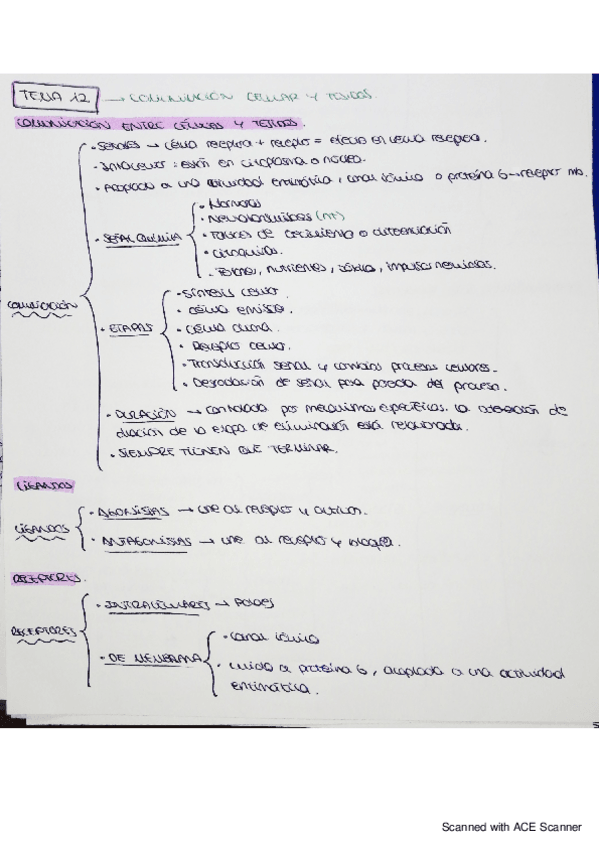 TEMA 12 → COMUNICACIÓN CELULAR Y TEJIDOS.
COMUNICACIÓN ENTRE CÉLULAS Y TEJIDOS.
· SEÑALES → célula receptora + receptor = efecto en célula receptora.
· Intracelular: están en citoplasma o núcleo.
· Acoplado a una actividad enzimática, canal iónico o proteína G → receptor mb.
· SEÑAL QUÍMICA
· Hormonas
· Neurotransmisores (NT)
· Factores de crecimiento o diferenciación
· Citoquinas.
nutrientes, impulsos nerviosos.
COMUNICACIÓN
· ETAPAS
· Síntesis célula.
· Célula emisora.
· Célula diana.
· Receptor celular.
· Transducción señal y cambios procesos celulares.
· Degradación de señal para parada del proceso.
· DURACIÓN → controlada por mecanismos específicos. La
de la etapa de eliminación está relacionada.
· SIEMPRE TIENEN QUE TERMINAR.
LIGANDOS
LIGANDOS
· AGONISTAS → une al receptor y activan.
· ANTAGONISTAS → une al receptor y bloquea.
RECEPTORES.
RECEPTORES
· INTRACELULARES →
· DE MEMBRANA
· Canal iónico
· Unido a proteína G, acoplada a una actividad
enzimática.
Scanned with ACE Scanner